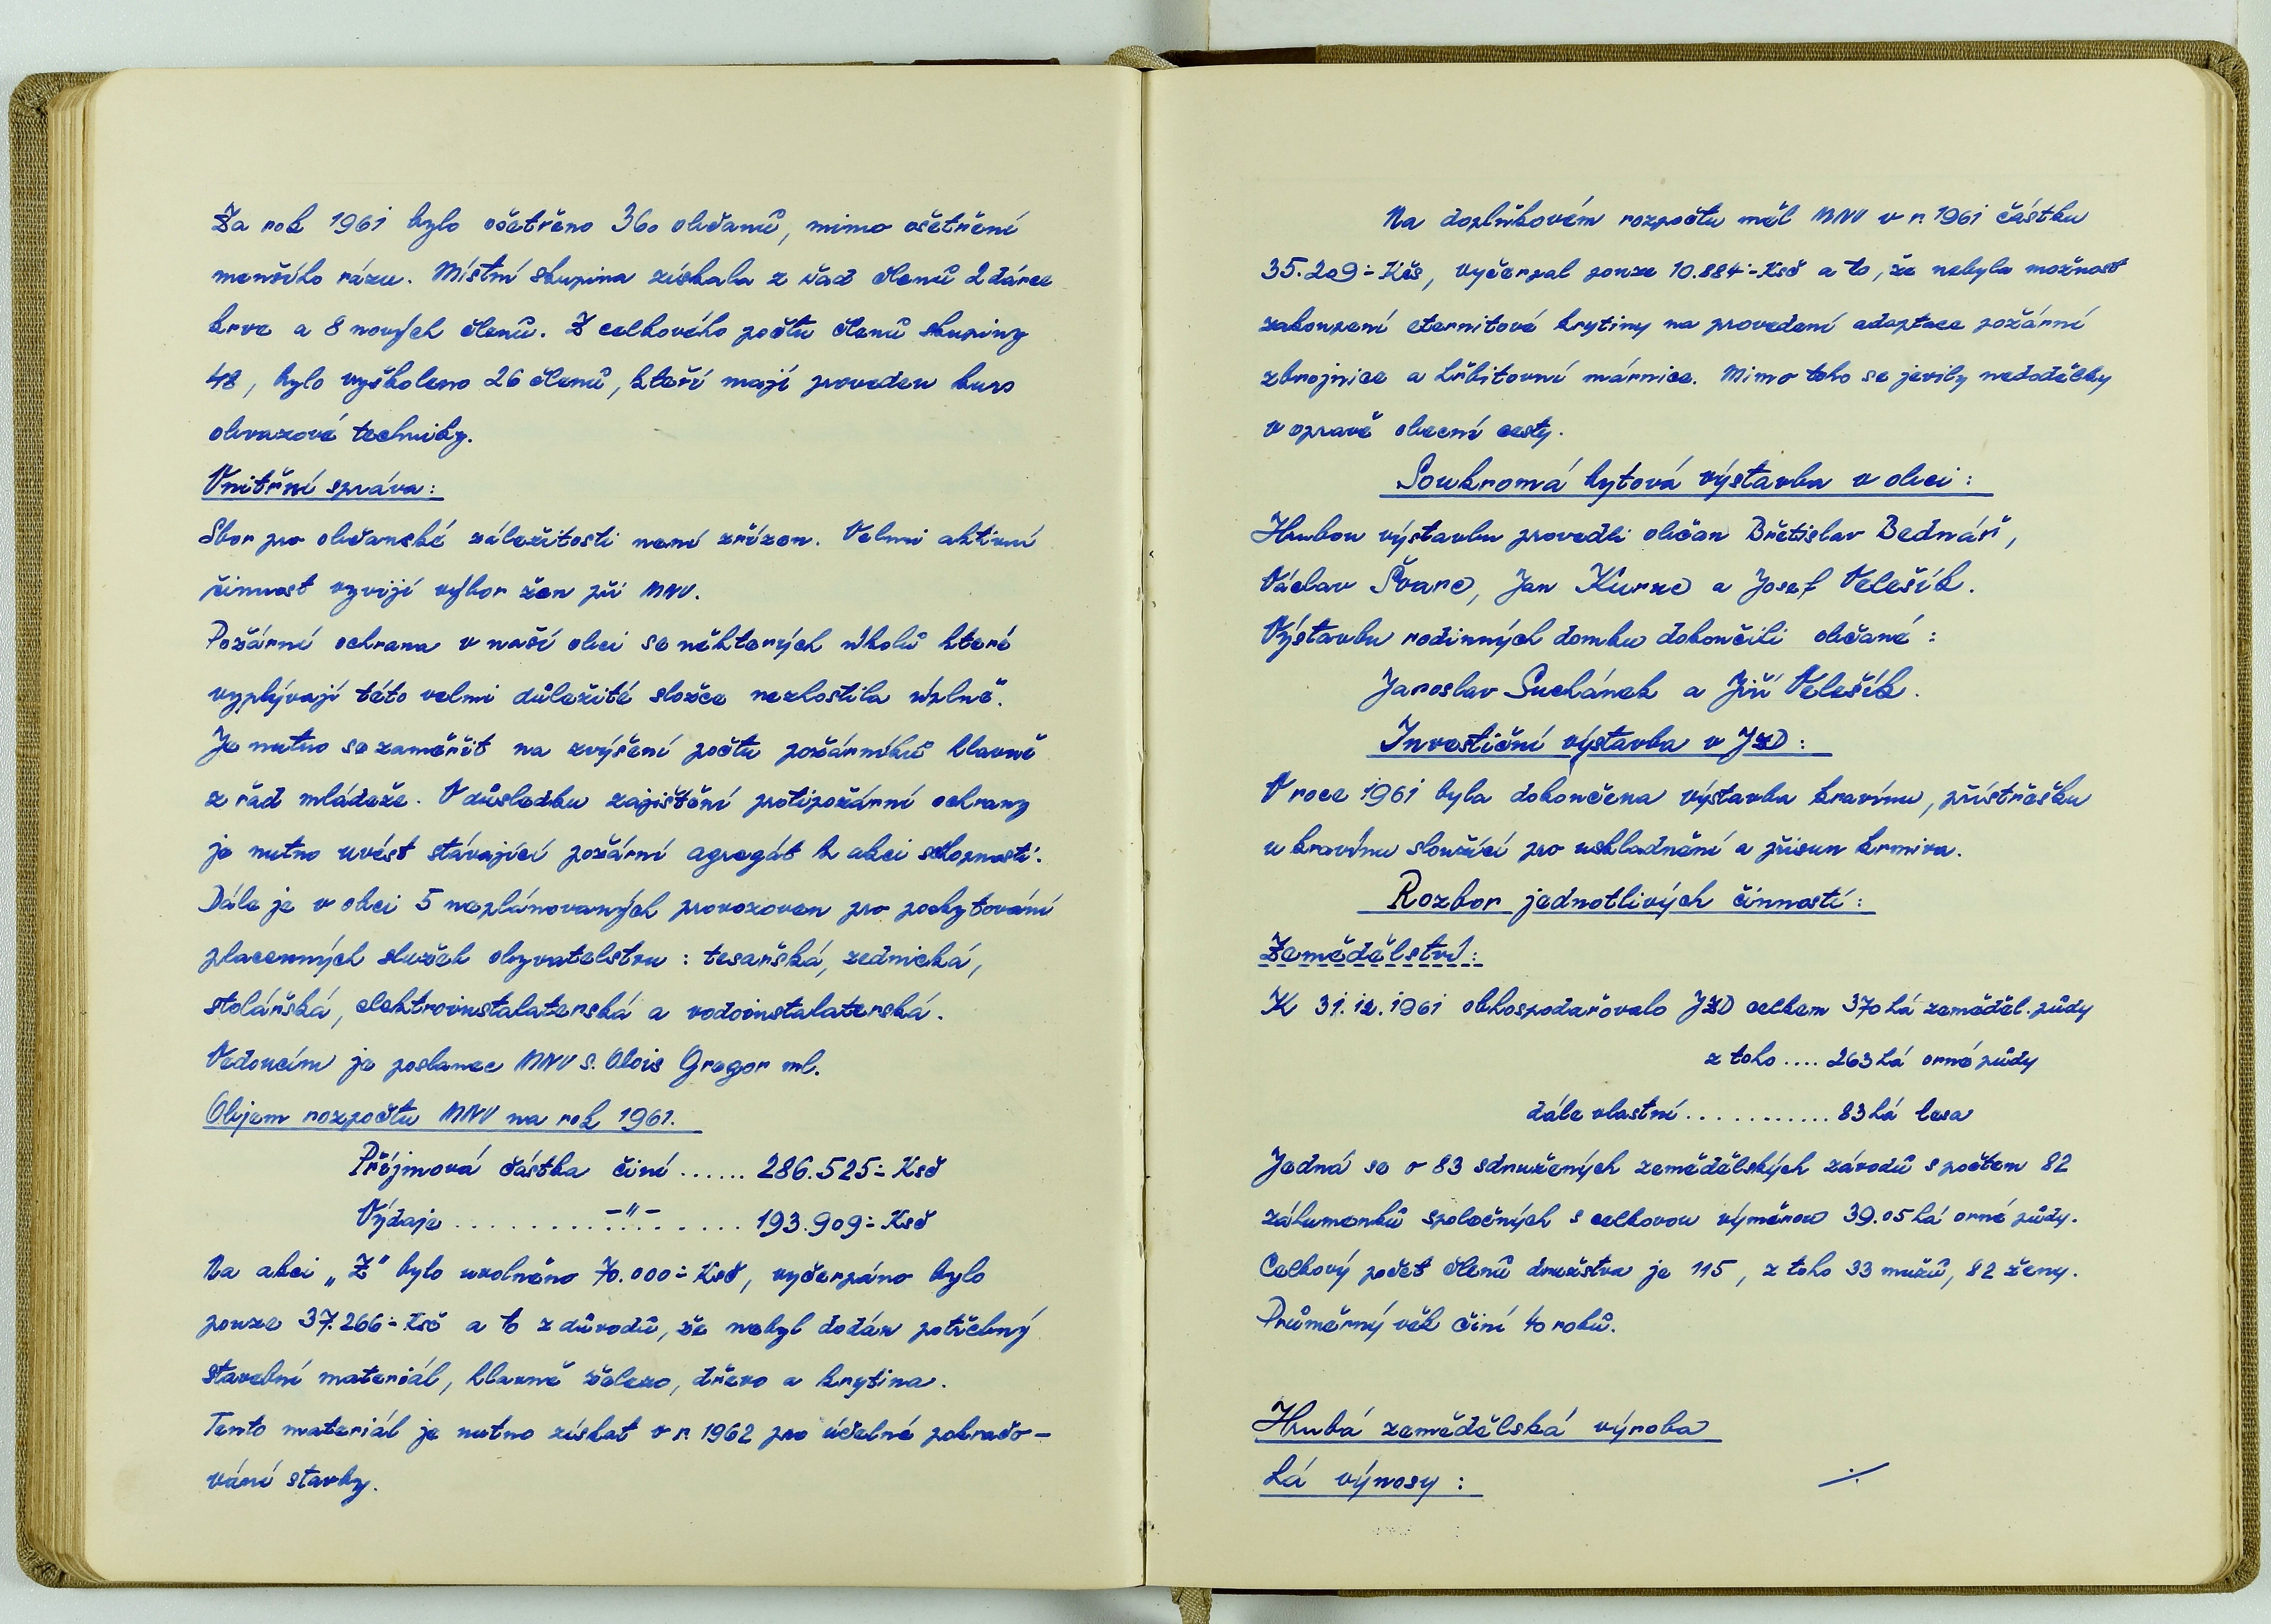 Za rok 1961 bylo ošetřeno 360 občanů, mimo ošetření
menšího rázu. Místní skupina získala z řad členů 2 dárce
krve a 8 nových členů. Z celkového počtu členů skupiny
48, bylo vyškoleno 26 členů, kteří mají proveden kurs
obvazové techniky.
Vnitřní správa:
Sbor pro občanské záležitosti není zřízen. Velmi aktivní
činnost vyvíjí výbor žen při MNV.
Požární ochrana v naší obci se některých úkolů které
vyplývají této velmi důležité složce nezhostila úplně.
Je nutno se zaměřit na zvýšení počtu požárníků hlavně
z řad mládeže. V důsledku zajištění protipožární ochrany
je nutno uvést stávající požární agregát k akci schopnosti.
Dále je v obci 5 neplánovaných provozoven pro poskytování
placenných služeb obyvatelstvu : tesařská, zednická,
stolářská, elektroinstalaterská a vodoinstalaterská.
Vedoucím je poslanec MNV s. Alois Gregor ml.
Objem rozpočtu MNV na rok 1961.
Příjmová částka činí ...... 286.525.- Ksč
Výdaje ........ -"- ........ 193.909.- Ksč
Na akci „Z" bylo uvolněno 70.000.- Ksč, vyčerpáno bylo
pouze 37.266.- Ksč a to z důvodů, že nebyl dodán potřebný
stavební materiál, hlavně železo, dřevo a krytina.
Tento materiál je nutno získat v r. 1962 pro účelné pokračo-
vání stavby.
Na doplňkovém rozpočtu měl MNV v r. 1961 částku
35.209.- Kčs, vyčerpal pouze 10.884.- Ksč a to, že nebyla možnost
zakoupení eternitové krytiny na provedení adaptace požární
zbrojnice a hřbitovní márnice. Mimo toho se jevily nedodělky
v opravě obecní cesty.
Soukromá bytová výstavba v obci :
Hrubou výstavbu provedli občan Břetislav Bednář,
Václav Švarc, Jan Kurz a Josef Velešík.
Výstavbu rodinných domku dokončili občané :
Jaroslav Suchánek a Jiří Velešík.
Investiční výstavba v JZD :
V roce 1961 byla dokončena výstavba kravínu, přístřešku
u kravínu sloužící pro uskladnění a přísun krmiva.
Rozbor jednotlivých činností :
Zemědělství :
K 31. 12. 1961 obhospodařovalo JZD celkem 370 há zeměděl. půdy
z toho .... 263 há orné půdy
dále vlastní ........... 83 há lesa
Jedná se o 83 sdružených zemědělských závodů s počtem 82
záhumenků společných s celkovou výměrou 39.05 há orné půdy.
Celkový počet členů družstva je 115, z toho 33 mužů, 82 ženy.
Průměrný věk činí 40 roků.
Hrubá zemědělská výroba
há výnosy :
./.